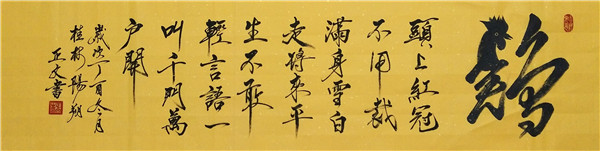 鷄
頭上紅冠
不用裁
滿身雪白
走將來平
生不敢
輕言語一
叫千門萬
户開
歲次丁酉冬月
桂林陽朔
文書